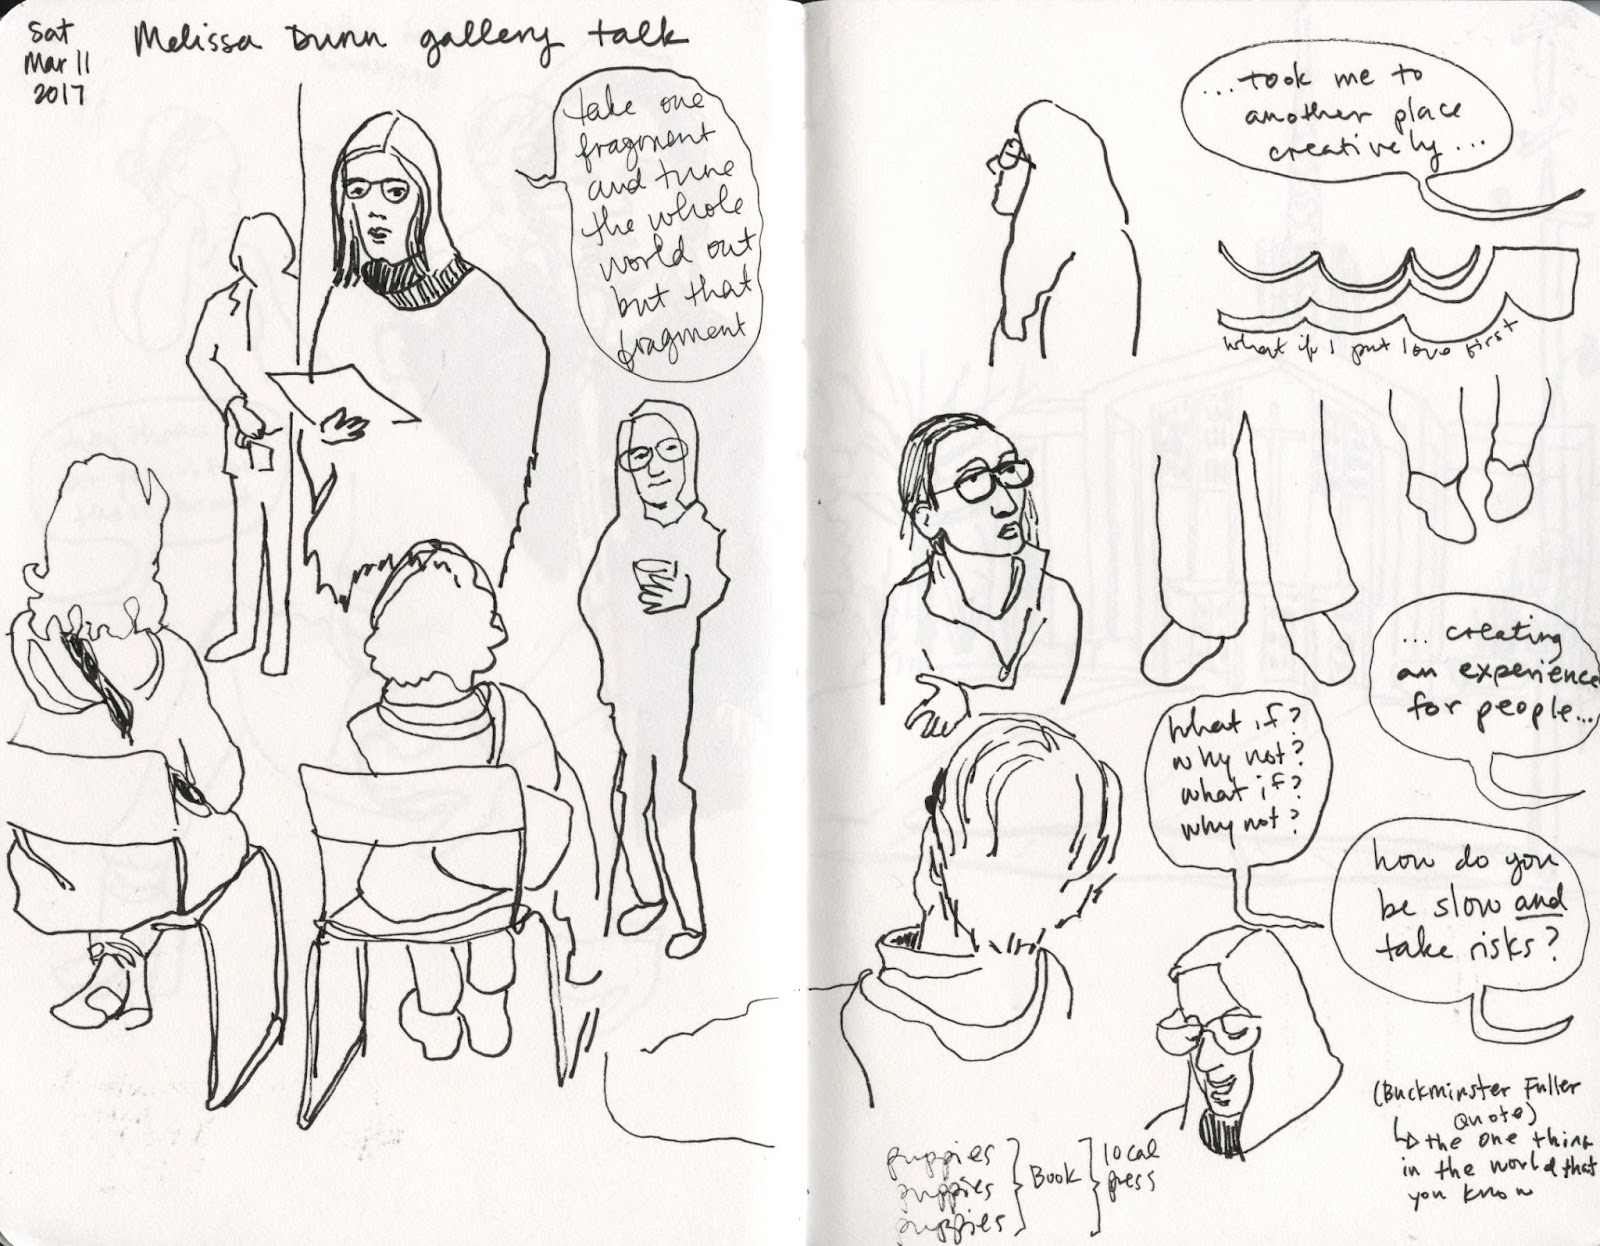 Sat
Mar 11
2017
Melissa Dunn gallery talk
take one
fragment
and tune
the whole
world out
but that
fragment
...took me to
another place
creatively...
what if I put love first
... creating
an experience
for people...
what if?
why not?
what if?
why not?
how do you
be slow and
take risks?
(Buckminster Fuller
Quote)
the one thing
in the world that
you know
puppies
puppies
puppies
Book
local
press